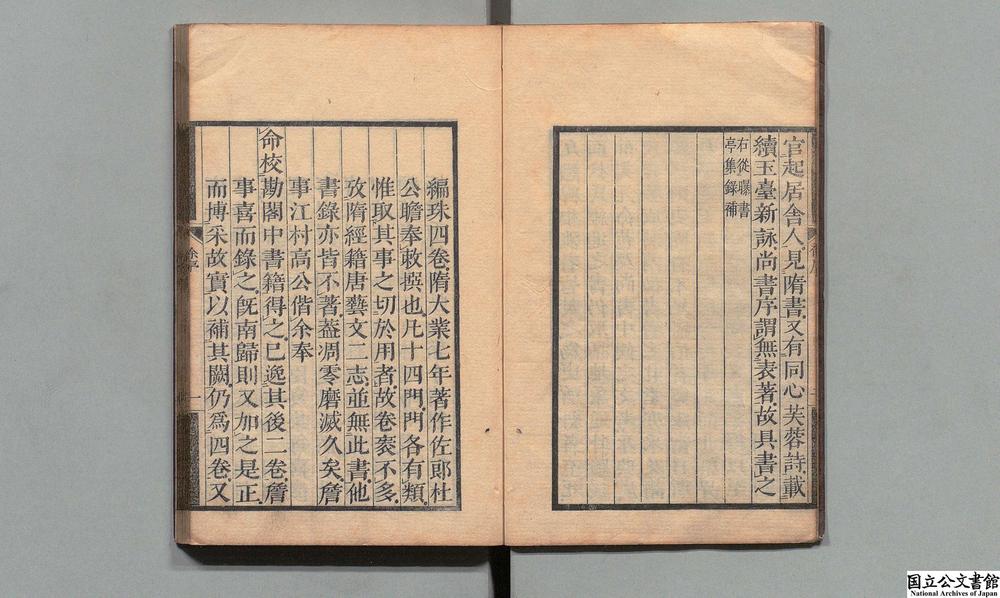 官起居舍人見隋書又有同心芙蓉詩載
續玉臺新詠尚書序謂無表著故具書之
右從曝書
亭集錄補
編珠四卷隋大業七年著作佐郎杜
公瞻奉敕撰也凡十四門門各有類
惟取其事之切於用者故卷袠不多
攷隋經籍唐藝文二志並無此書他
書錄亦皆不著葢凋零磨滅久矣詹
事江村高公偕余奉
命校勘閣中書籍得之已逸其後二卷詹
事喜而錄之旣南歸則又加之是正
而博采故實以補其闕仍爲四卷又
徐序
一
国立公文書館
National Archives of Japan